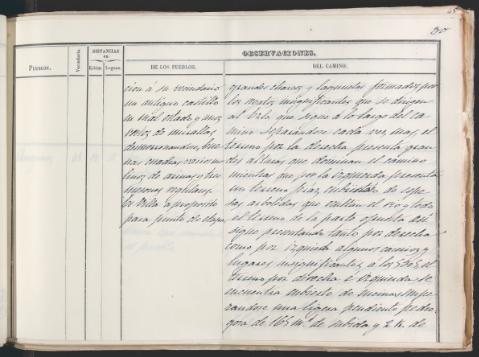 OBSERVACIONES.
PUEBLOS.
Vecindario.
DISTANCIAS
en
Kilóm. Leguas.
DE LOS PUEBLOS.
DEL CAMINO.
cion á su vecindario
un antiguo castillo
en mal estado y unos
restos de murallas
desmoronandose, bue
nas cuadras, varios mo
linos de arinas y tres
mesones regulares.
La Villa á proposito
para punto de etapa
grandes charcos y lagunetas formados por
los restos insignificantes que se dirigen
al que sigue á lo largo del ca
mino separandose cada vez mas, el
terreno por la derecha presenta gran
des alturas que dominan el camino
mientras que por la izquierda presenta
un terreno cubierto de espe
sas arboledas que el rio, y todo
el terreno de la parte opuesta asi
sigue presentando tanto por derecha
como por izquierda algunos caminos y
lugares insignificantes, á los el
terreno por derecha é izquierda se
encuentra cubierto de encinas empe
zandose una ligera pendiente pedre
gosa de 165 m.s de subida y 2 k. de